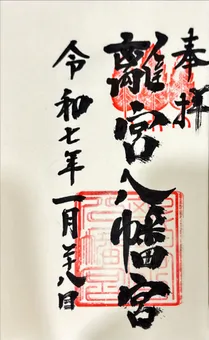 奉拝
離宮八幡宮
令和七年一月二十八日